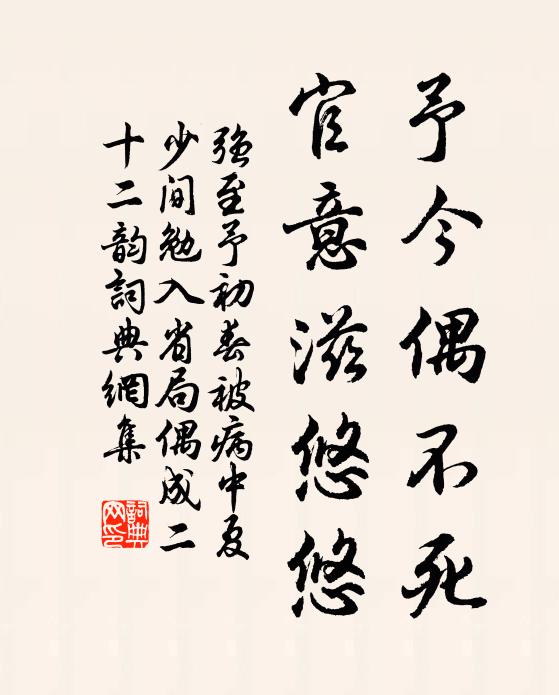 予今偶不死
官意滋悠悠
强至予初春被病中夏
少间勉入省局偶成二
十二韵詞典網集
詞典网印